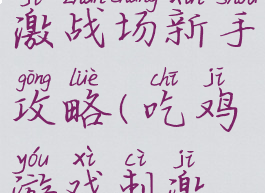 jī zhàn chǎng xīn shǒu
激战场新手
gōng lüè chī jī
攻略(吃鸡
yóu xì cì jī
游戏刺激